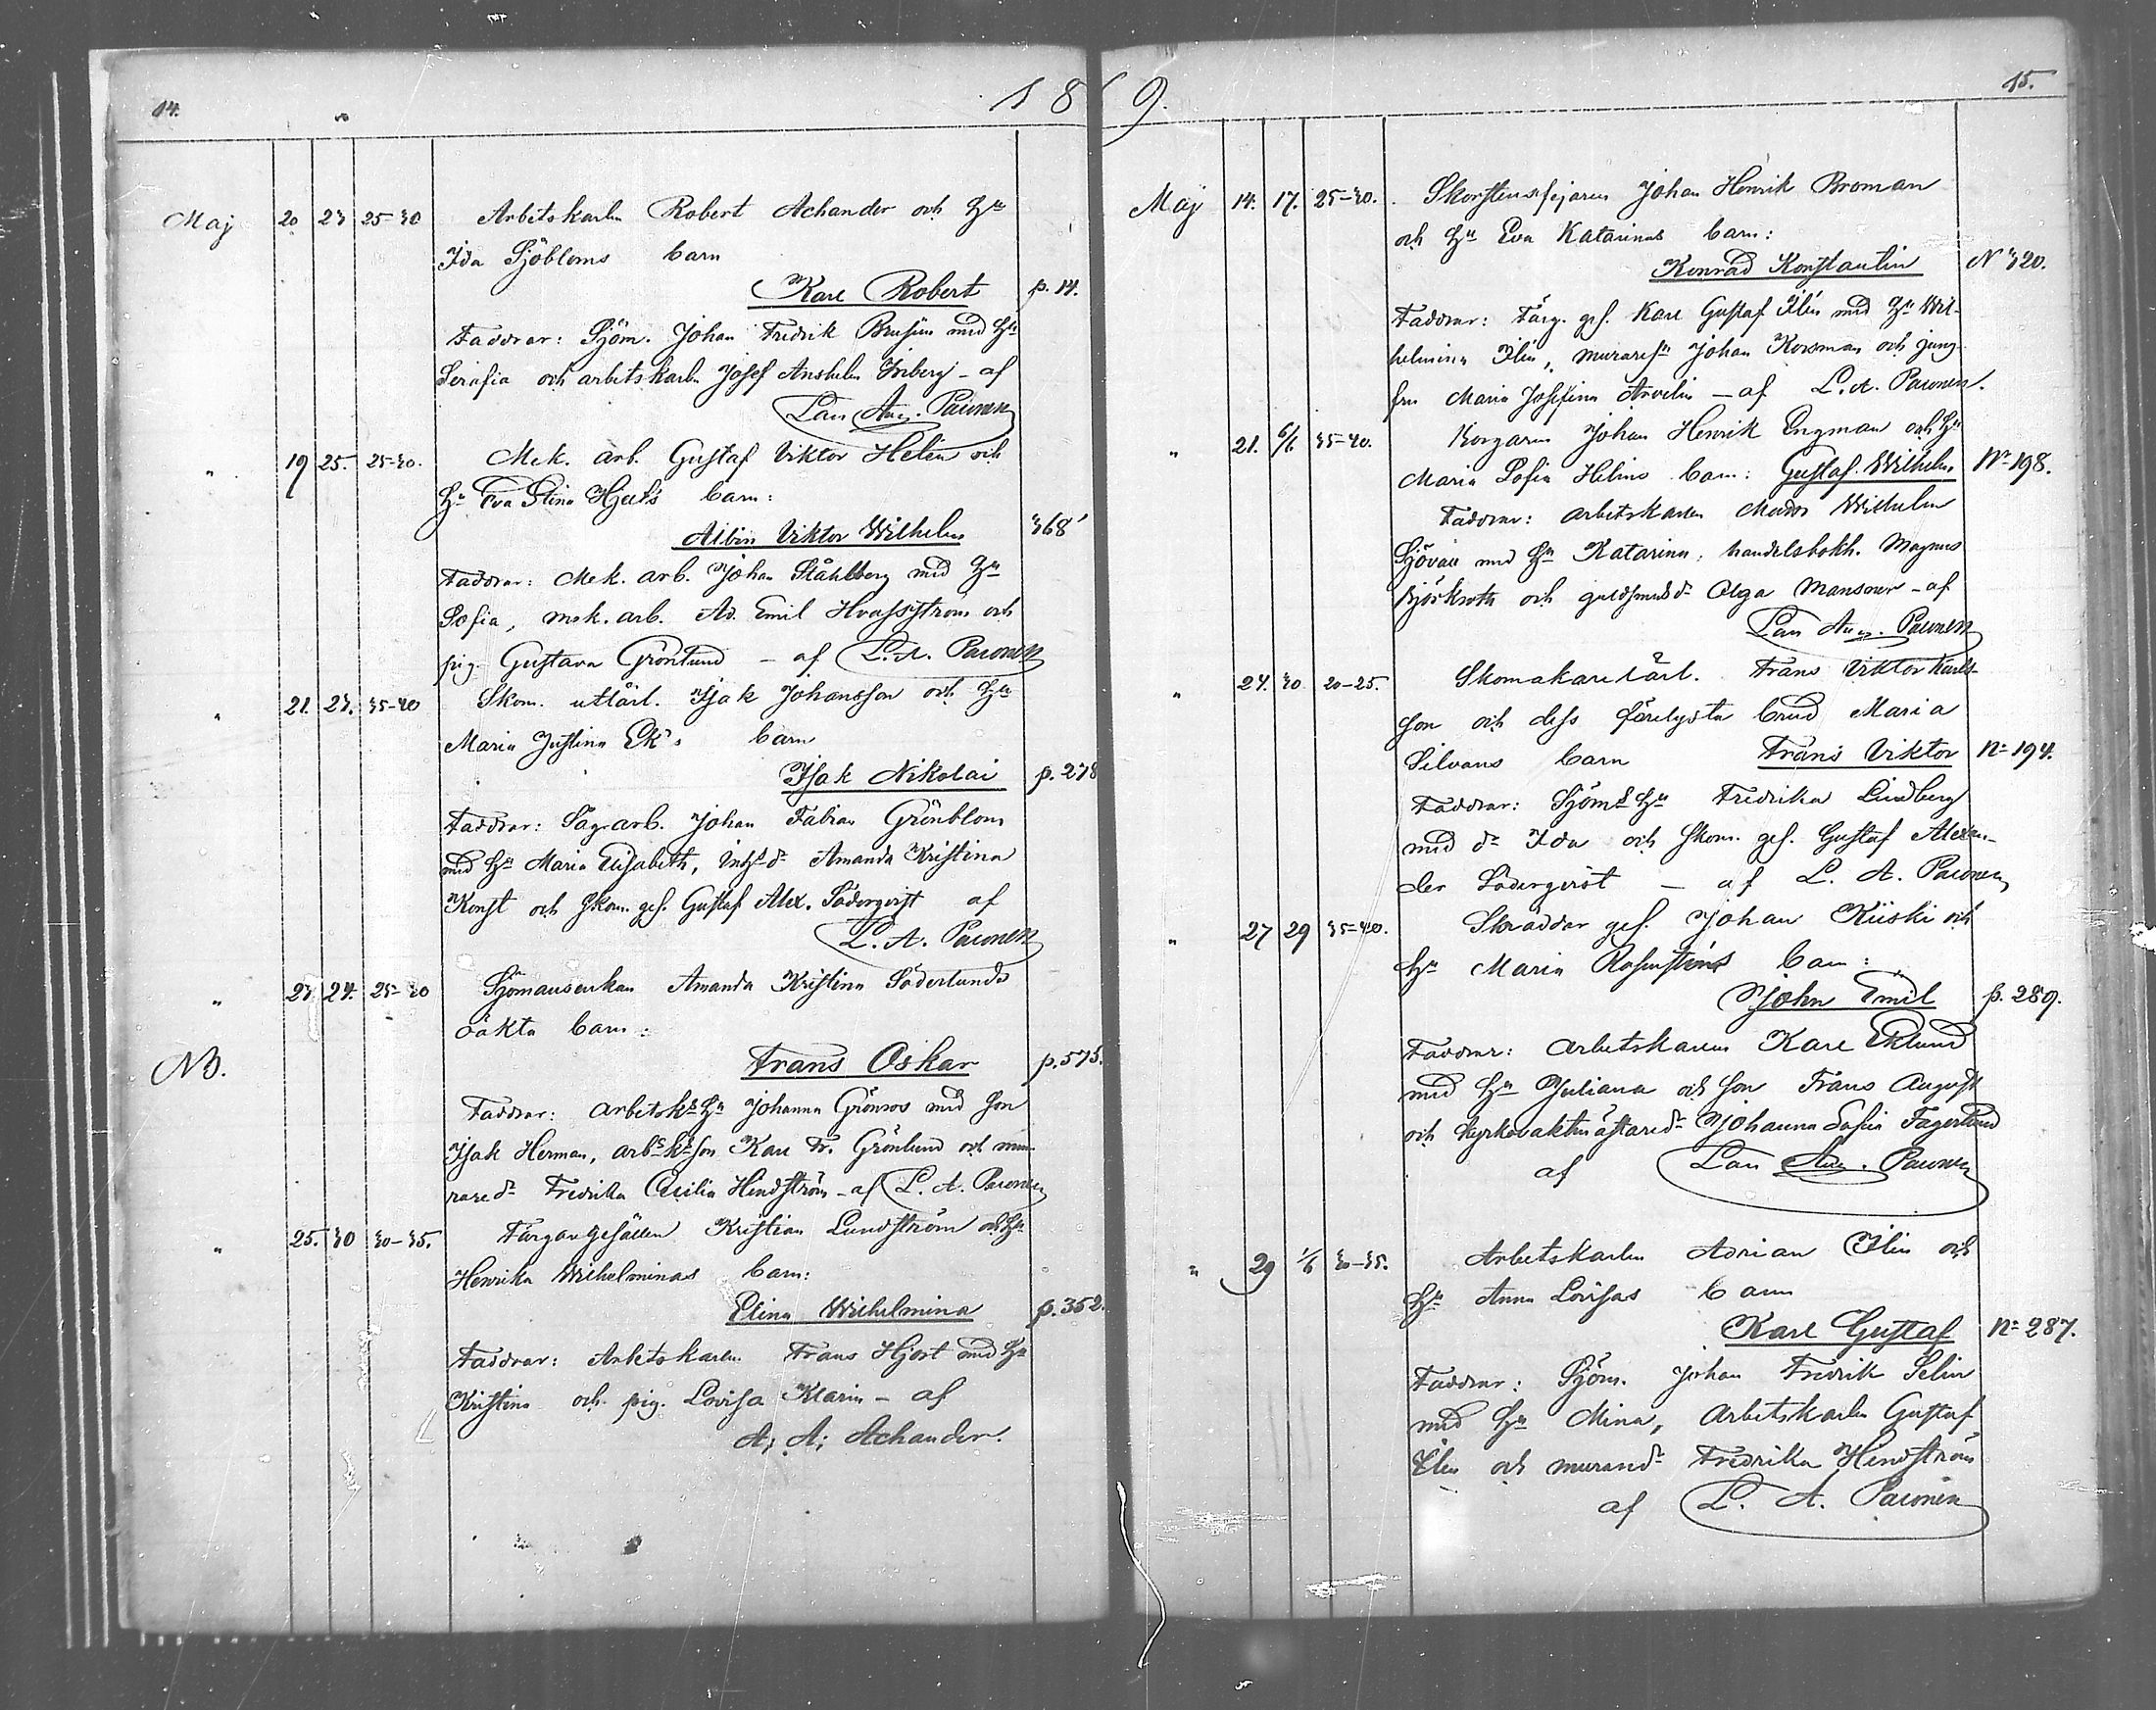 14.
1869.
Maj 20 23 25-30 Arbetskarln Robert Achander och Hu
Ida Sjöbloms barn
Karl Robert p. 14.
Faddrar: Sjöm. Johan Fredrik Brusin med Hu
Serafia och arbetskarln Josef Anshelm Friberg - af
Lars Aug. Paionen
" 19 25. 25-30. Mek. arb. Gustaf Viktor Helin och
Hu Eva Stina Hjelts barn:
Albin Viktor Wilhelm 368
Faddrar: Mek. arb. Johan Ståhlberg med Hu
Sofia, mek. arb. Ad. Emil Hvassström och
pig. Gustava Grönlund - af L. A. Paionen
" 21. 23. 35-40 Skom. utlärl. Isak Johansson och Hu
Maria Justina Ek's barn
Isak Nikolai p. 278
Faddrar: Sågarb. Johan Fabian Grönblom
med Hu Maria Elisabeth, inhs dr Amanda Kristina
Konst och skom. ges. Gustaf Alex. Södergvist af
L. A. Paionen
" 23 24. 25-30 Sjömansenkan Amanda Kristina Söderlunds
oäkta barn:
NB. Frans Oskar p. 575.
Faddrar: arbetsks Hu Johanna Grönroos med son
Isak Herman, arbs ks son Karl Fr. Grönlund och mu-
rare dr Fredrika Cecilia Hindström - af L. A. Paionen
" 25. 30 30-35. Färgaregesällen Kristian Lundström och Hu
Henrika Wilhelminas barn:
Elina Wilhelmina p. 352.
Faddrar: Arbetskarln Frans Hjort med Hu
Kristina och pig. Lovisa Klarin - af
A. A. Achander.
15.
Maj 14. 17. 25-30. Skorstensfejaren Johan Henrik Broman
och Hu Eva Katarinas barn:
Konrad Konstantin N 320.
Faddrar: Färg. ges. Karl Gustaf Ilén med Hu Wil-
helmina Ilén, murares Johan Korsman och jung-
fru Maria Josefina Arvelin - af L. A. Paionen.
" 21. 6/6 35-40. Korgaren Johan Henrik Engman och Hu
Maria Sofia Helins barn: Gustaf Wilhelm No 198.
Faddrar: arbetskarln Wilhelm
Sjövall med Hu Katarina, handelsbokh. Magnus
Björkroth och guldsmeds dr Olga Mansner - af
Lars Aug. Paionen
" 24. 30 20-25. Skomakarelärl. Frans Viktor Karls-
son och dess förelysta brud Maria
Silvans barn Frans Viktor No 194.
Faddrar: Sjöms Hu Fredrika Lindberg
med dr Ida och skom. ges. Gustaf Alexan-
der Södergvist - af L. A. Paionen
" 27 29 35-40. Skräddar ges. Johan Kiiski och
Hu Maria Rosenströms barn:
John Emil p. 289.
Faddrar: arbetskarln Karl Eklund
med Hu Juliana och son Frans August
och kyrkovaktmästare dr Johanna Sofia Fagerlund
af Lars Aug. Paionen
" 29 1/6 30-35. Arbetskarln Adrian Ilén och
Hu Anna Lovisas barn
Karl Gustaf No 287.
Faddrar: Sjöm. Johan Fredrik Selin
med Hu Mina, Arbetskarln Gustaf
Ilén och murare dr Fredrika Hindström
af L. A. Paionen